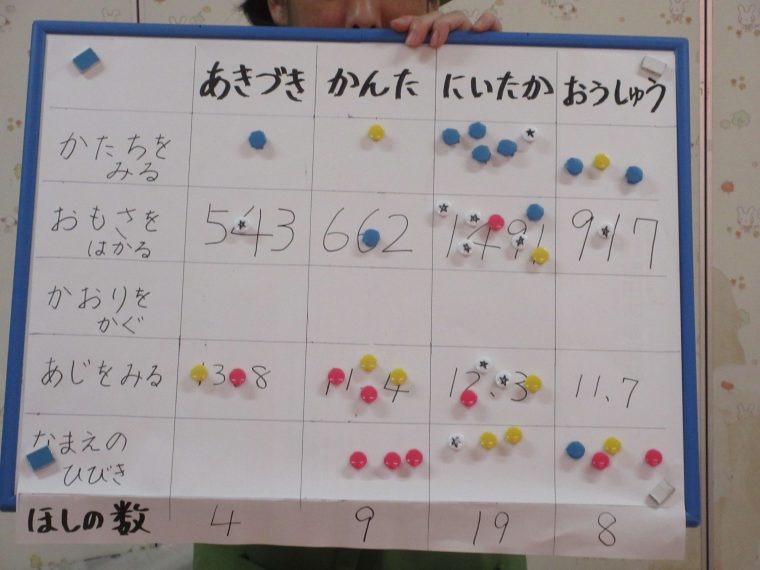 あきづき かんた にいたか おうしゅう
かたちを
みる
おもさを 543 662 1491 917
はかる
かおりを
かぐ
あじをみる 13.8 11.4 12.3 11.7
なまえの
ひびき
ほしの数 4 9 19 8